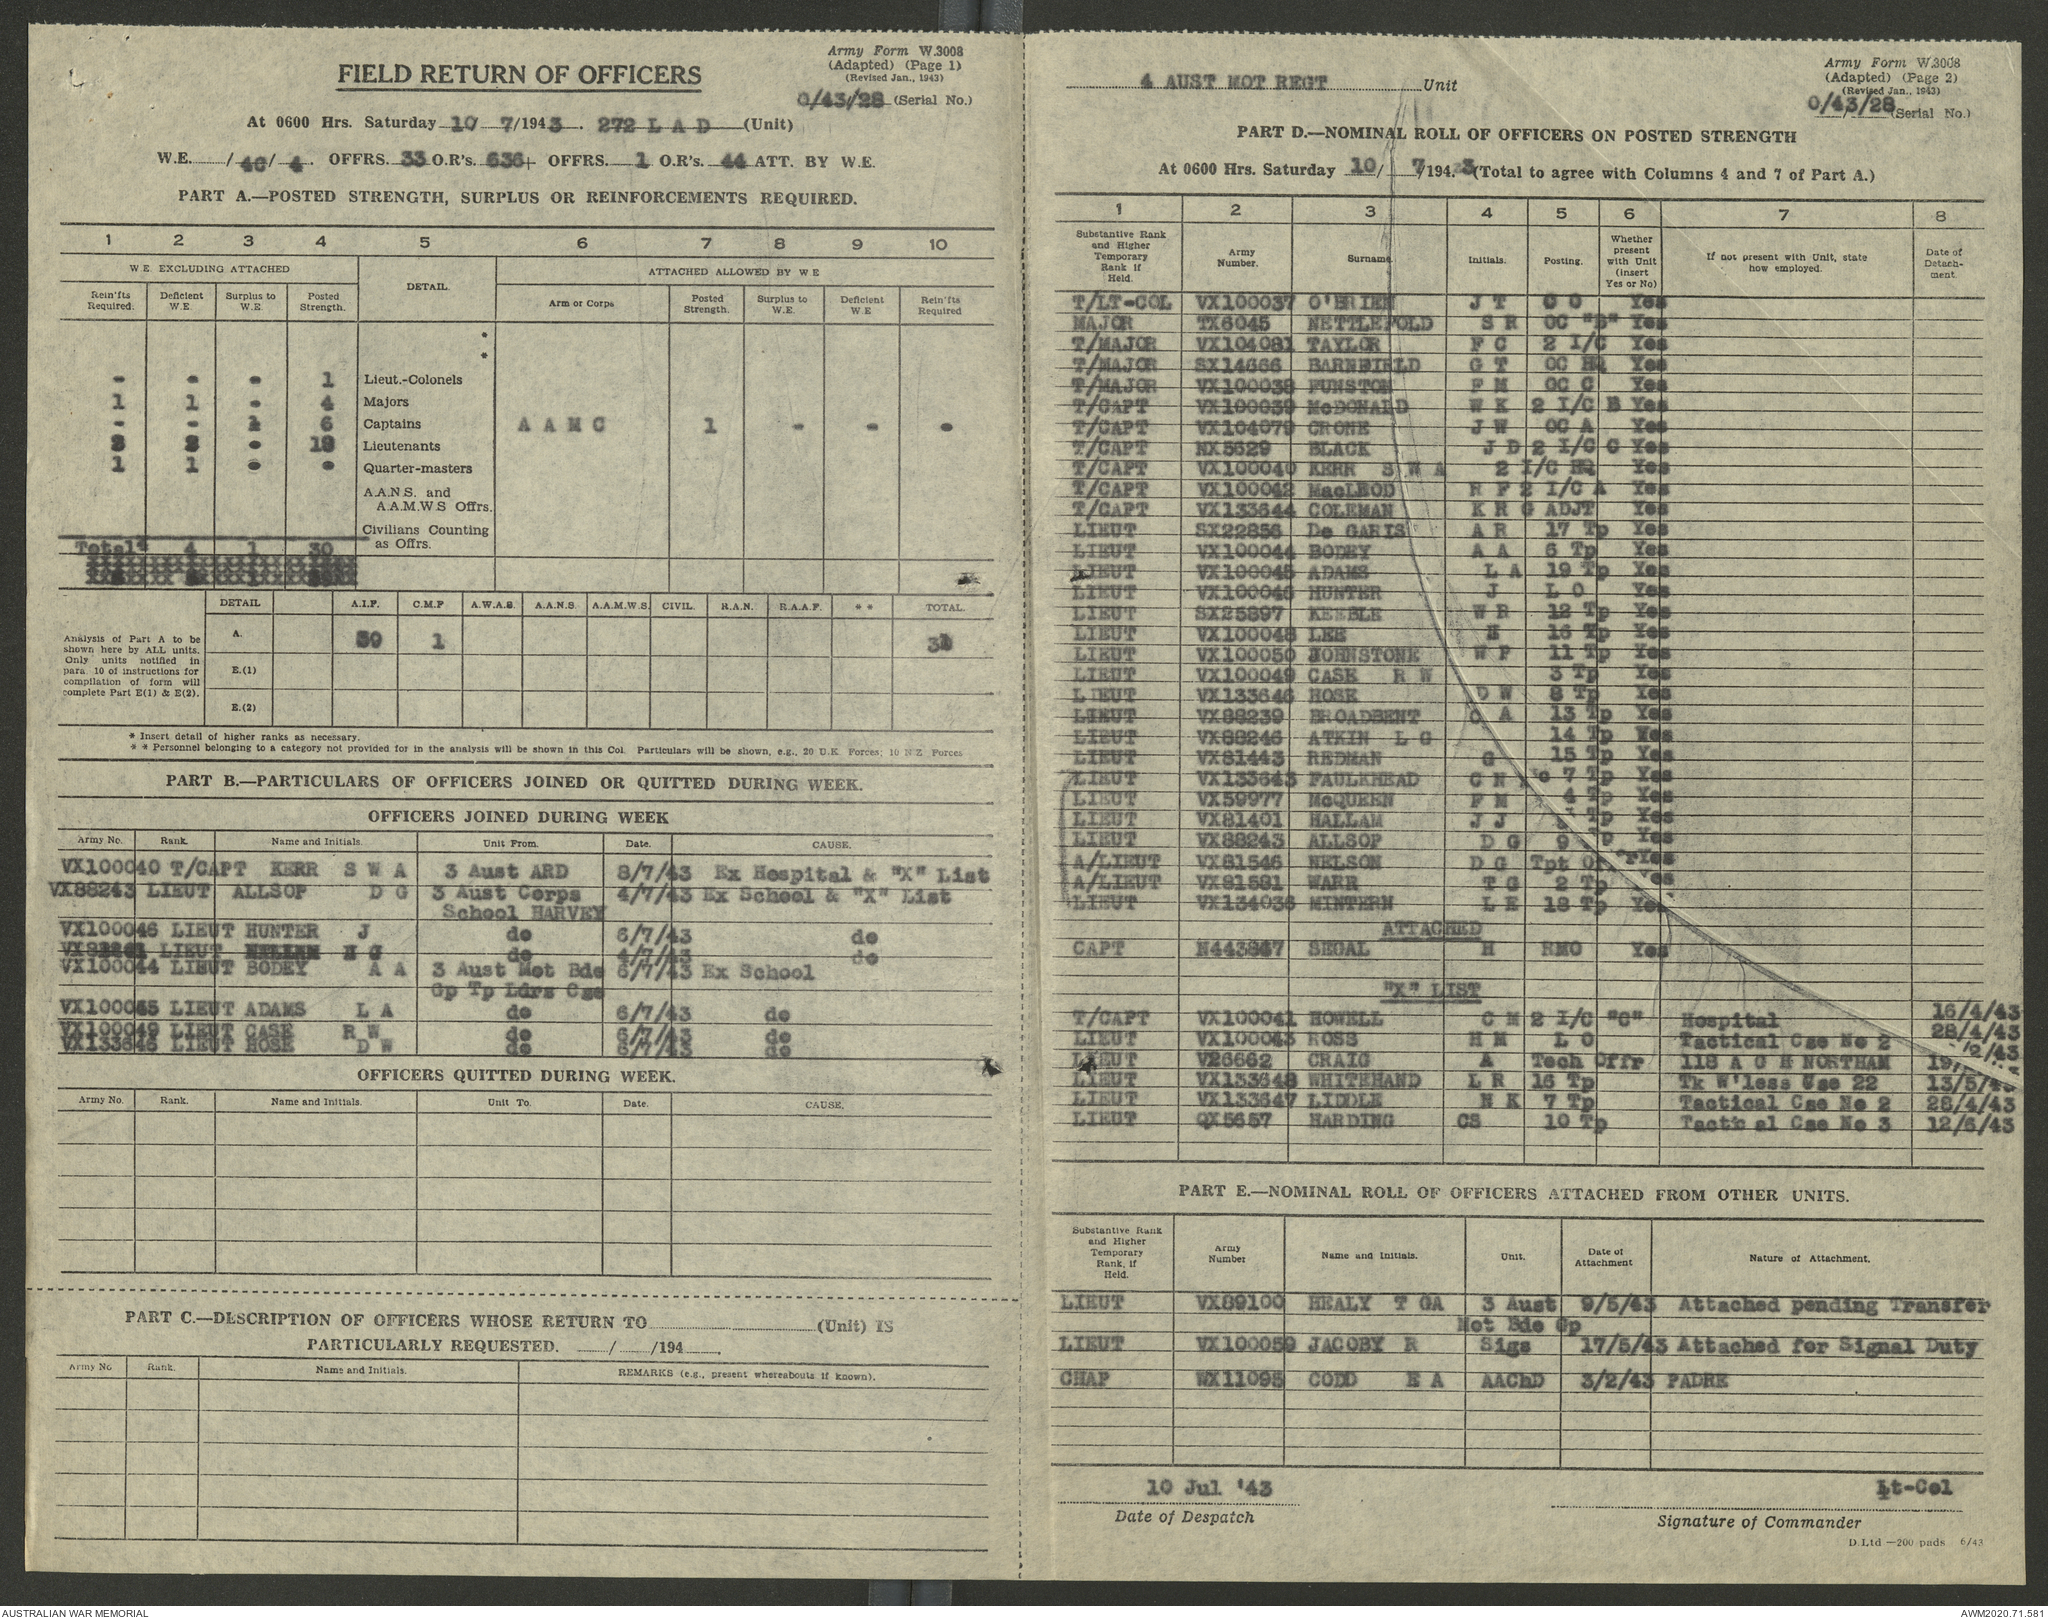 Army Form W.3008
(Adapted) (Page 1)
(Revised Jan., 1943)
FIELD RETURN OF OFFICERS
O/43/28 (Serial No.)
At 0600 Hrs. Saturday 10 7/1943. 272 L A D (Unit)
W.E. /46/4. OFFRS. 33 O.R's. 636+ OFFRS. 1 O.R's. 44 ATT. BY W.E.
PART A.—POSTED STRENGTH, SURPLUS OR REINFORCEMENTS REQUIRED.
1 2 3 4 5 6 7 8 9 10
W.E. EXCLUDING ATTACHED DETAIL. ATTACHED ALLOWED BY W E
Rein'fts Required. Deficient W.E. Surplus to W.E. Posted Strength. Arm or Corps Posted Strength. Surplus to W.E. Deficient W.E Rein'fts Required
*
*
- - - 1 Lieut.-Colonels
1 1 - 4 Majors
- - 1 6 Captains A A M C 1 - - -
Lieutenants
1 1 - - Quarter-masters
A.A.N.S. and
A.A.M.W.S Offrs.
Civilians Counting
as Offrs.
Total 4 1 30
DETAIL A.I.F. C.M.F A.W.A.S. A.A.N.S. A.A.M.W.S. CIVIL. R.A.N. R.A.A.F. * * TOTAL.
Analysis of Part A to be
shown here by ALL units.
Only units notified in
para 10 of instructions for
compilation of form will
complete Part E(1) & E(2).
A. 1
E.(1)
E.(2)
* Insert detail of higher ranks as necessary.
* * Personnel belonging to a category not provided for in the analysis will be shown in this Col. Particulars will be shown, e.g., 20 U.K. Forces; 10 N Z Forces
PART B.—PARTICULARS OF OFFICERS JOINED OR QUITTED DURING WEEK.
OFFICERS JOINED DURING WEEK
Army No. Rank. Name and Initials. Unit From. Date. CAUSE.
VX100040 T/CAPT KERR S W A 3 Aust ARD 8/7/43 Ex Hospital & "X" List
VX88243 LIEUT ALLSOP D G 3 Aust Corps 4/7/43 Ex School & "X" List
School HARVEY
VX100046 LIEUT HUNTER J do 6/7/43 do
LIEUT do 4/7/43 do
VX100044 LIEUT BODEY A A 3 Aust Mot Bde 6/7/43 Ex School
Gp Tp Ldrs Cse
LIEUT ADAMS L A do 6/7/43 do
VX100049 LIEUT CASE R W do 6/7/43 do
VX133646 LIEUT HOSE D W do 6/7/43 do
OFFICERS QUITTED DURING WEEK.
Army No. Rank. Name and Initials. Unit To. Date. CAUSE.
PART C.—DESCRIPTION OF OFFICERS WHOSE RETURN TO (Unit) IS
PARTICULARLY REQUESTED. / /194 .
Army No Rank. Name and Initials. REMARKS (e.g., present whereabouts if known).
Army Form W.3008
(Adapted) (Page 2)
(Revised Jan., 1943)
4 AUST MOT REGT Unit
O/43/28 (Serial No.)
PART D.—NOMINAL ROLL OF OFFICERS ON POSTED STRENGTH
At 0600 Hrs. Saturday 10/ 7/1943 (Total to agree with Columns 4 and 7 of Part A.)
1 2 3 4 5 6 7 8
Substantive Rank and Higher Temporary Rank if Held. Army Number. Surname. Initials. Posting. Whether present with Unit (insert Yes or No) If not present with Unit, state how employed. Date of Detachment.
T/LT-COL VX100037 O'BRIEN J T C O Yes
MAJOR TX6045 NETTLEFOLD S R OC "B" Yes
T/MAJOR VX104081 TAYLOR F C 2 I/C Yes
T/MAJOR SX14666 BARNFIELD G T OC HQ Yes
T/MAJOR VX100038 FUNSTON F M OC C Yes
T/CAPT VX100039 McDONALD W K 2 I/C B Yes
T/CAPT VX104079 CRONE J W OC A Yes
T/CAPT NX5629 BLACK J D 2 I/C C Yes
T/CAPT VX100040 KERR S W A 2 I/C HQ Yes
T/CAPT VX100042 MacLEOD R F 2 I/C A Yes
T/CAPT VX133644 COLEMAN K R G ADJT Yes
LIEUT SX22856 De GARIS A R 17 Tp Yes
LIEUT VX100044 BODEY A A 6 Tp Yes
LIEUT VX100045 ADAMS L A 19 Tp Yes
LIEUT VX100046 HUNTER J L O Yes
LIEUT SX25897 KEEBLE W R 12 Tp Yes
LIEUT VX100048 LEE 16 Tp Yes
LIEUT VX100050 JOHNSTONE W F 11 Tp Yes
LIEUT VX100049 CASE R W 3 Tp Yes
LIEUT VX133646 HOSE D W 8 Tp Yes
LIEUT VX88239 BROADBENT C A 13 Tp Yes
LIEUT VX88246 ATKIN L G 14 Tp Yes
LIEUT VX81443 REDMAN G 15 Tp Yes
LIEUT VX133643 FAULKHEAD C N 7 Tp Yes
LIEUT VX59977 McQUEEN F M 4 Tp Yes
LIEUT VX81401 HALLAM J J Yes
LIEUT VX88243 ALLSOP D G 9 Yes
A/LIEUT VX81546 NELSON D G Tpt Yes
A/LIEUT VX81581 WARR T G 2 Tp
LIEUT VX134036 MINTERN L E 18 Tp Yes
ATTACHED
CAPT N443847 SEGAL H RMO Yes
"X" LIST
T/CAPT VX100041 HOWELL C M 2 I/C "C" Hospital 16/4/43
LIEUT VX100043 ROSS H M L O Tactical Cse No 2 28/4/43
LIEUT V26662 CRAIG A Tech Offr 118 A G H NORTHAM
LIEUT VX133648 WHITEHAND L R 16 Tp Tk W'less Cse 22 13/5/43
LIEUT VX133647 LIDDLE H K 7 Tp Tactical Cse No 2 28/4/43
LIEUT QX5657 HARDING CS 10 Tp Tactical Cse No 3 12/6/43
PART E.—NOMINAL ROLL OF OFFICERS ATTACHED FROM OTHER UNITS.
Substantive Rank and Higher Temporary Rank, if Held. Army Number Name and Initials. Unit. Date of Attachment Nature of Attachment.
LIEUT VX89100 HEALY T GA 3 Aust 9/5/43 Attached pending Transfer
Mot Bde Gp
LIEUT VX100059 JACOBY R Sigs 17/5/43 Attached for Signal Duty
CHAP WX11095 CODD E A AAChD 3/2/43 PADRE
10 Jul '43
Lt-Col
Date of Despatch
Signature of Commander
D.Ltd —200 pads 6/43
AUSTRALIAN WAR MEMORIAL
AWM2020.71.581